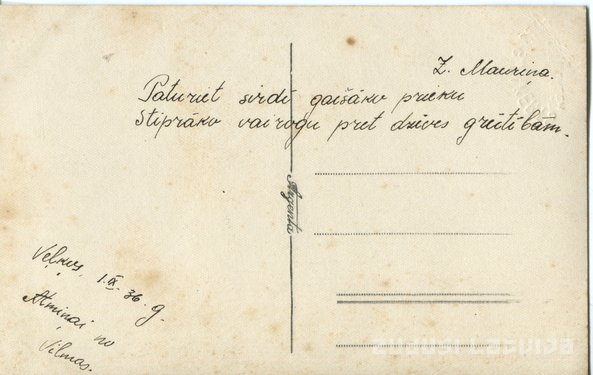 Z. Mauriņa.
Paturiet sirdī gaišāko prieku
Stiprāko vairogu pret dzīves grūtībām.
Argenta
Veļķos, 1.IX.36.g.
Atmiņai no
Vilmas.
zudusi Latvija